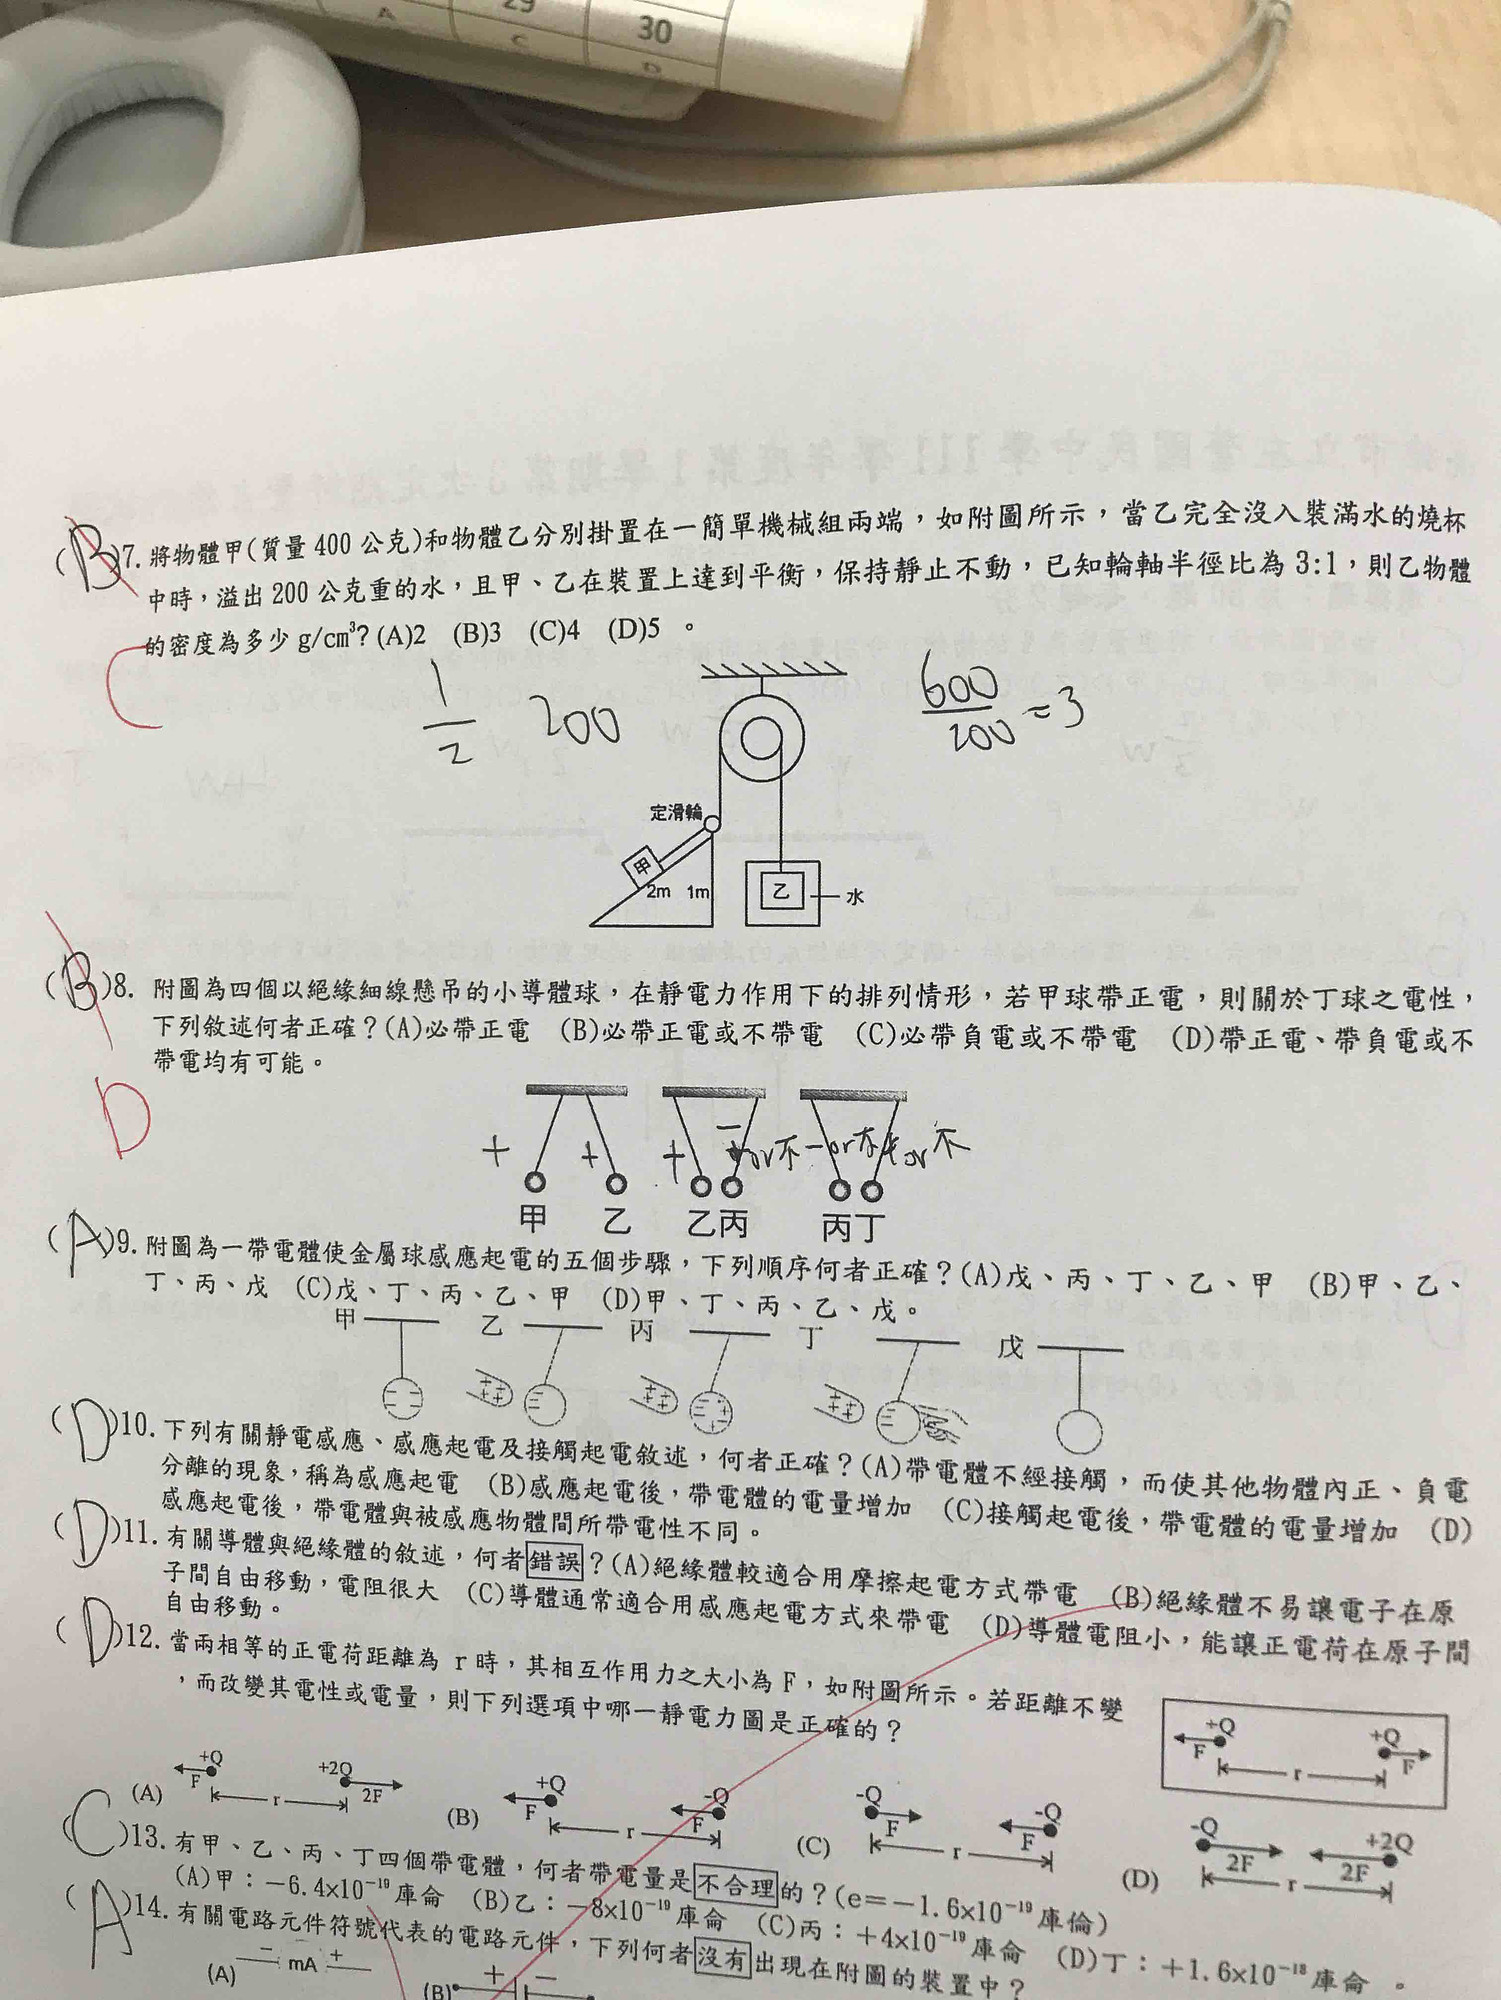 29
30
A
C
D
(B)7. 將物體甲(質量 400 公克)和物體乙分別掛置在一簡單機械組兩端，如附圖所示，當乙完全沒入裝滿水的燒杯
中時，溢出 200 公克重的水，且甲、乙在裝置上達到平衡，保持靜止不動，已知輪軸半徑比為 3:1，則乙物體
的密度為多少 g/cm³? (A)2 (B)3 (C)4 (D)5 。
C
1/2 200
600/200 = 3
定滑輪
甲
2m 1m
乙
水
(B)8. 附圖為四個以絕緣細線懸吊的小導體球，在靜電力作用下的排列情形，若甲球帶正電，則關於丁球之電性，
下列敘述何者正確？(A)必帶正電 (B)必帶正電或不帶電 (C)必帶負電或不帶電 (D)帶正電、帶負電或不
帶電均有可能。
D
+ + + - or不 - or不 + or 不
甲 乙 乙丙 丙丁
(A)9. 附圖為一帶電體使金屬球感應起電的五個步驟，下列順序何者正確？(A)戊、丙、丁、乙、甲 (B)甲、乙、
丁、丙、戊 (C)戊、丁、丙、乙、甲 (D)甲、丁、丙、乙、戊。
甲 乙 丙 丁 戊
(D)10. 下列有關靜電感應、感應起電及接觸起電敘述，何者正確？(A)帶電體不經接觸，而使其他物體內正、負電
分離的現象，稱為感應起電 (B)感應起電後，帶電體的電量增加 (C)接觸起電後，帶電體的電量增加 (D)
感應起電後，帶電體與被感應物體間所帶電性不同。
(D)11. 有關導體與絕緣體的敘述，何者錯誤？(A)絕緣體較適合用摩擦起電方式帶電 (B)絕緣體不易讓電子在原
子間自由移動，電阻很大 (C)導體通常適合用感應起電方式來帶電 (D)導體電阻小，能讓正電荷在原子間
自由移動。
(D)12. 當兩相等的正電荷距離為 r 時，其相互作用力之大小為 F，如附圖所示。若距離不變
，而改變其電性或電量，則下列選項中哪一靜電力圖是正確的？
+Q +Q
F r F
(A) +Q +2Q
F r 2F
(B) +Q -Q
F r F
(C) -Q -Q
F r F
(D) -Q +2Q
2F r 2F
(C)13. 有甲、乙、丙、丁四個帶電體，何者帶電量是不合理的？(e=-1.6×10⁻¹⁹庫倫)
(A)甲：-6.4×10⁻¹⁹庫侖 (B)乙：-8×10⁻¹⁹庫侖 (C)丙：+4×10⁻¹⁹庫侖 (D)丁：+1.6×10⁻¹⁸庫侖 。
(A)14. 有關電路元件符號代表的電路元件，下列何者沒有出現在附圖的裝置中？
(A) - mA + (B) + -